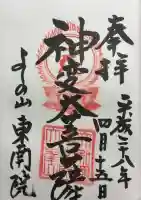 奉拝
平成二十八年
四月十五日
神変大菩薩
よしの山
東南院